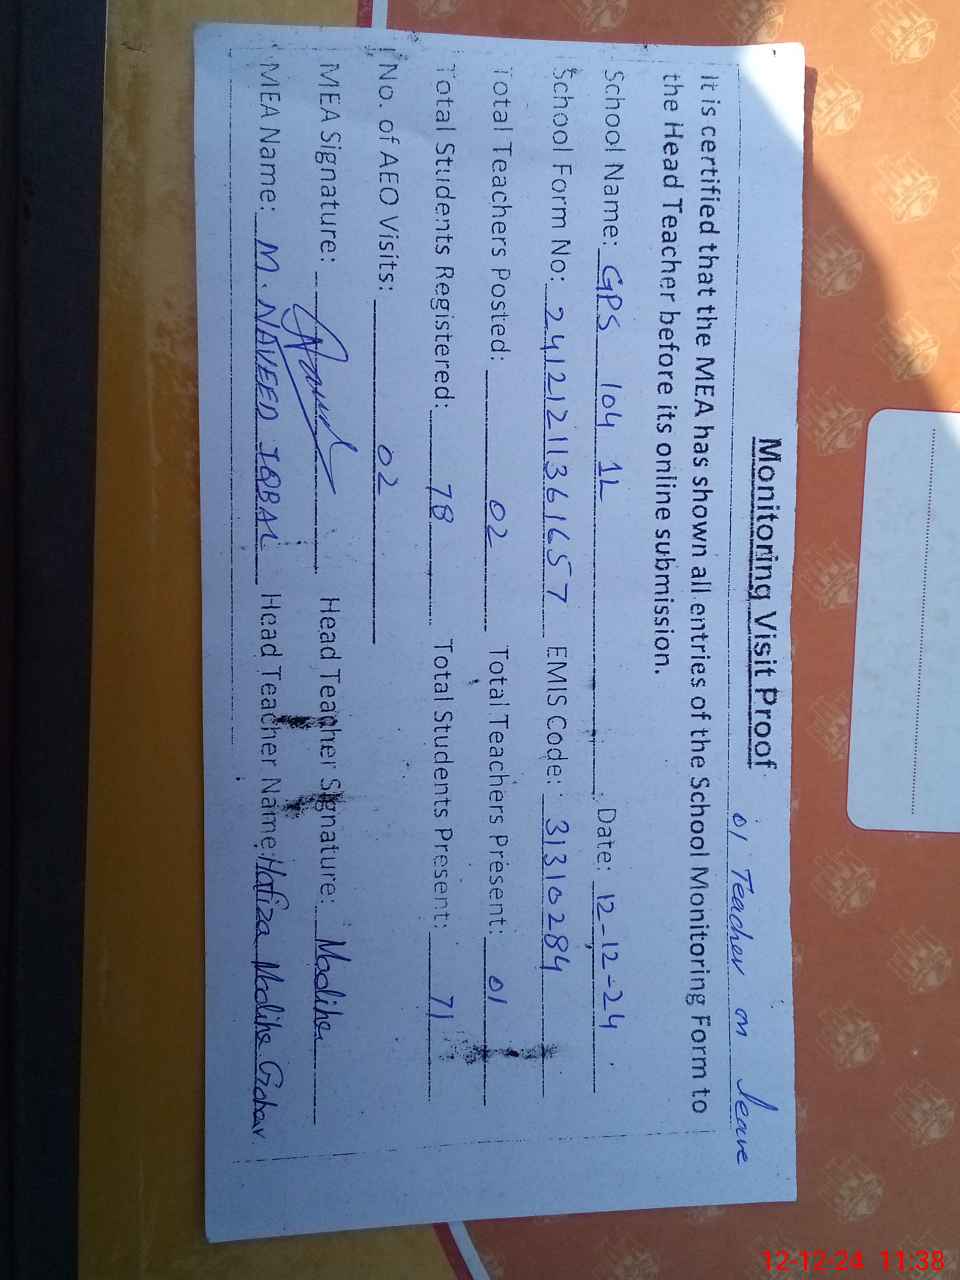 Monitoring Visit Proof
01 Teacher on leave
It is certified that the MEA has shown all entries of the School Monitoring Form to
the Head Teacher before its online submission.
School Name: GPS 104 1L Date: 12-12-24
School Form No: 24121211361657 EMIS Code: 31310284
Total Teachers Posted: 02 Total Teachers Present: 01
Total Students Registered: 78 Total Students Present: 71
No. of AEO Visits: 02
MEA Signature: Head Teacher Signature: Madiha
MEA Name: M. NAVEED IQBAL Head Teacher Name: Hafiza Madiha Gohar
12-12-24 11:38